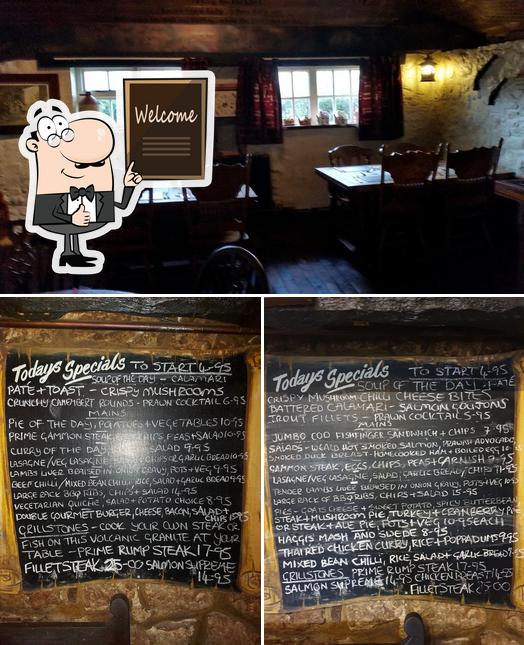 Welcome
Todays Specials TO START 4-95
SOUP OF THE DAY - CALAMARI
PATE + TOAST - CRISPY MUSHROOMS
CRUNCHY CAMEMBERT ROUNDS - PRAWN COCKTAIL 6-95
MAINS
PIE OF THE DAY, POTATOES + VEGETABLES 10-95
PRIME GAMMON STEAK CHIPS, PEAS + SALAD 10-95
CURRY OF THE DAY SALAD 9-95
LASAGNE/VEG LASAGNE
LAMBS LIVER ONION GRAVY, POTS + VEG 9-95
BEEF CHILLI/MIXED BEAN CHILLI, RICE, SALAD + GARLIC BREAD
LARGE RACK BBQ RIBS, CHIPS + SALAD
VEGETARIAN QUICHE, SALAD + POTATO CHOICE 8-95
DOUBLE GOURMET BURGER, CHEESE, BACON, SALAD +
CHIPS
GRILLSTONES - COOK YOUR OWN STEAK OR
FISH ON THIS VOLCANIC GRANITE AT YOUR
TABLE - PRIME RUMP STEAK 17-95
FILLET STEAK 25-00 SALMON SUPREME
14-95
Todays Specials TO START 4-95
SOUP OF THE DAY
CRISPY MUSHROOM CHILLI CHEESE BITES
BATTERED CALAMARI - SALMON COUJONS
TROUT FILLETS PRAWN COCKTAIL 5-95
MAINS
JUMBO COD FISHFINGER SANDWICH + CHIPS 7-95
SALADS - HOT SMOKED SALMON, PRAWN + AVOCADO,
SMOKED DUCK BREAST - HOMECOOKED HAM + BOILED EGG
GAMMON STEAK, EGGS, CHIPS, PEAS + GARNISH 9-95
LASAGNE/VEG LASAGNE, SALAD, GARLIC BREAD/CHIPS
TENDER LAMBS LIVER ONION GRAVY, POTS + VEG
LARGE RACK OF BBQ RIBS, CHIPS + SALAD 15-95
PIES - GOATS CHEESE + SWEET POTATO, SPICY BUTTERBEAN
STEAK + MUSHROOM PIE, TURKEY + CRANBERRY PIE
OR STEAK + ALE PIE, POTS + VEG 10-95 EACH
HAGGIS MASH AND SWEDE 8-95
THAI RED CHICKEN CURRY, RICE + POPPADUM 9-95
MIXED BEAN CHILLI, RICE SALAD + GARLIC BREAD
GRILLSTONES PRIME RUMP STEAK 17-95
SALMON SUPREME 14-95 CHICKEN BREAST 14-95
FILLET STEAK 25-00